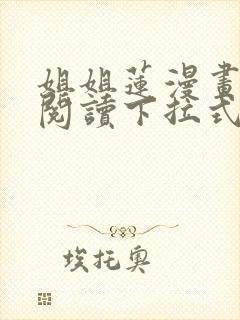 姐姐蓮漫畫
閱讀下拉式
埃托奧